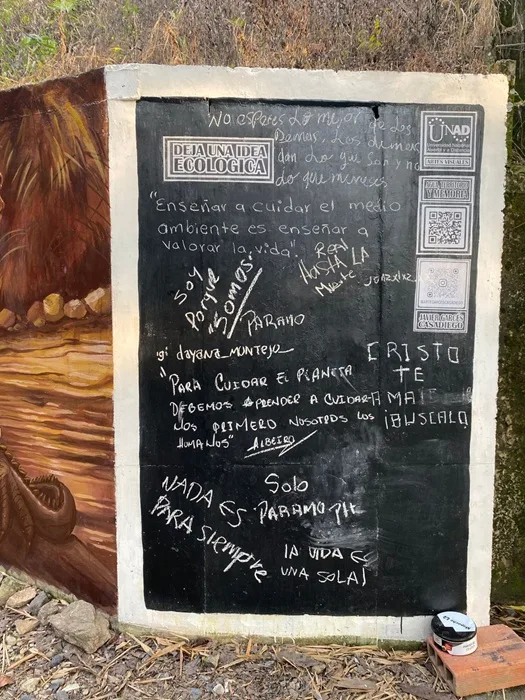 No esperes Lo mejor de los
Demas, Los demas
dan Lo que son y no
lo que mereces
DEJA UNA IDEA
ECOLOGICA
"Enseñar a cuidar el medio
ambiente es enseñar a
valorar la vida"
Real
HASTA LA
Muerte
SOY
Porque
"SOMOS"
PARAMO
dayana montejo
"PARA CUIDAR EL PLANETA
DEBEMOS APRENDER A CUIDAR
NOS PRIMERO NOSOTROS LOS
HUMANOS" ALBEIRO
CRISTO
TE
AMA
¡BUSCALO
NADA ES
PARA SIEMPRE
Solo
PARAMO PH
LA VIDA ES
UNA SOLA!
UNAD
Universidad Nacional
Abierta y a Distancia
ARTES VISUALES
AGUA, TERRITORIO
Y MEMORIA
JAVIER GARCÉS
CASADIEGO